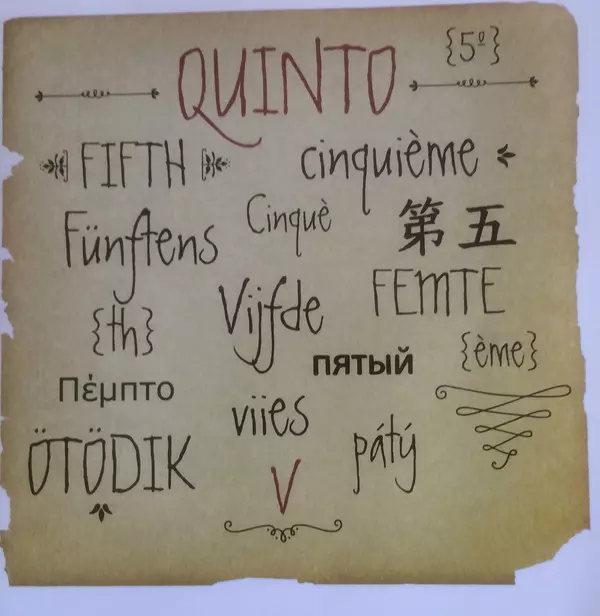 {5º}
QUINTO
FIFTH
cinquième
Fünftens
Cinquè
第五
{th}
Vijfde
FEMTE
пятый
{ème}
Πέμπτο
viies
ÖTÖDIK
pátý
V